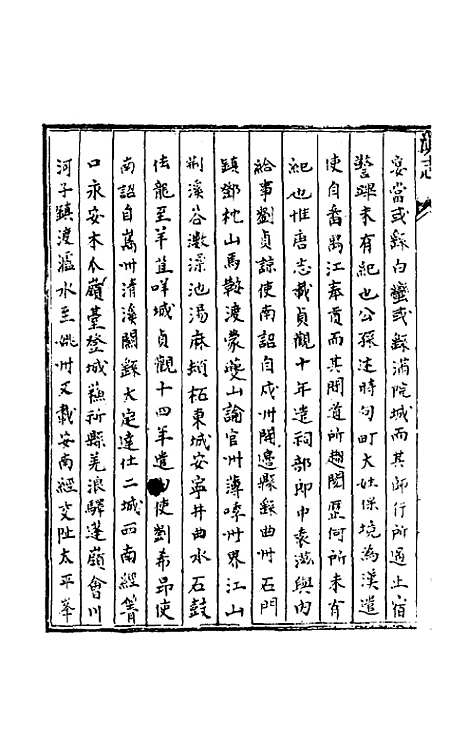 宴當或繇白蠻或繇消院城而其師行所過止宿
警蹕未有紀也公孫述時句町大姓保境為漢遣
使自番禺江奉貢而其閒道所趨閱歷何所未有
紀也惟唐志載貞觀十年遣祠部郎中袁滋與内
給事劉貞諒使南詔自戎州開邊縣繇曲州石門
鎮鄧枕山馬鞍渡蒙夔山諭官州薄哷州界江山
荆溪谷澂渿池湯麻頓柘東城安寧井曲水石鼓
佉龍至羊苴咩城貞觀十四年遣使劉希昂使
南詔自嶲州清溪關繇大定達仕二城西南經箐
口永安木瓜嶺臺登城蘓祁縣羌浪驛蓬嶺會川
河子鎮渡瀘水至姚州又載安南經交阯太平峯
志